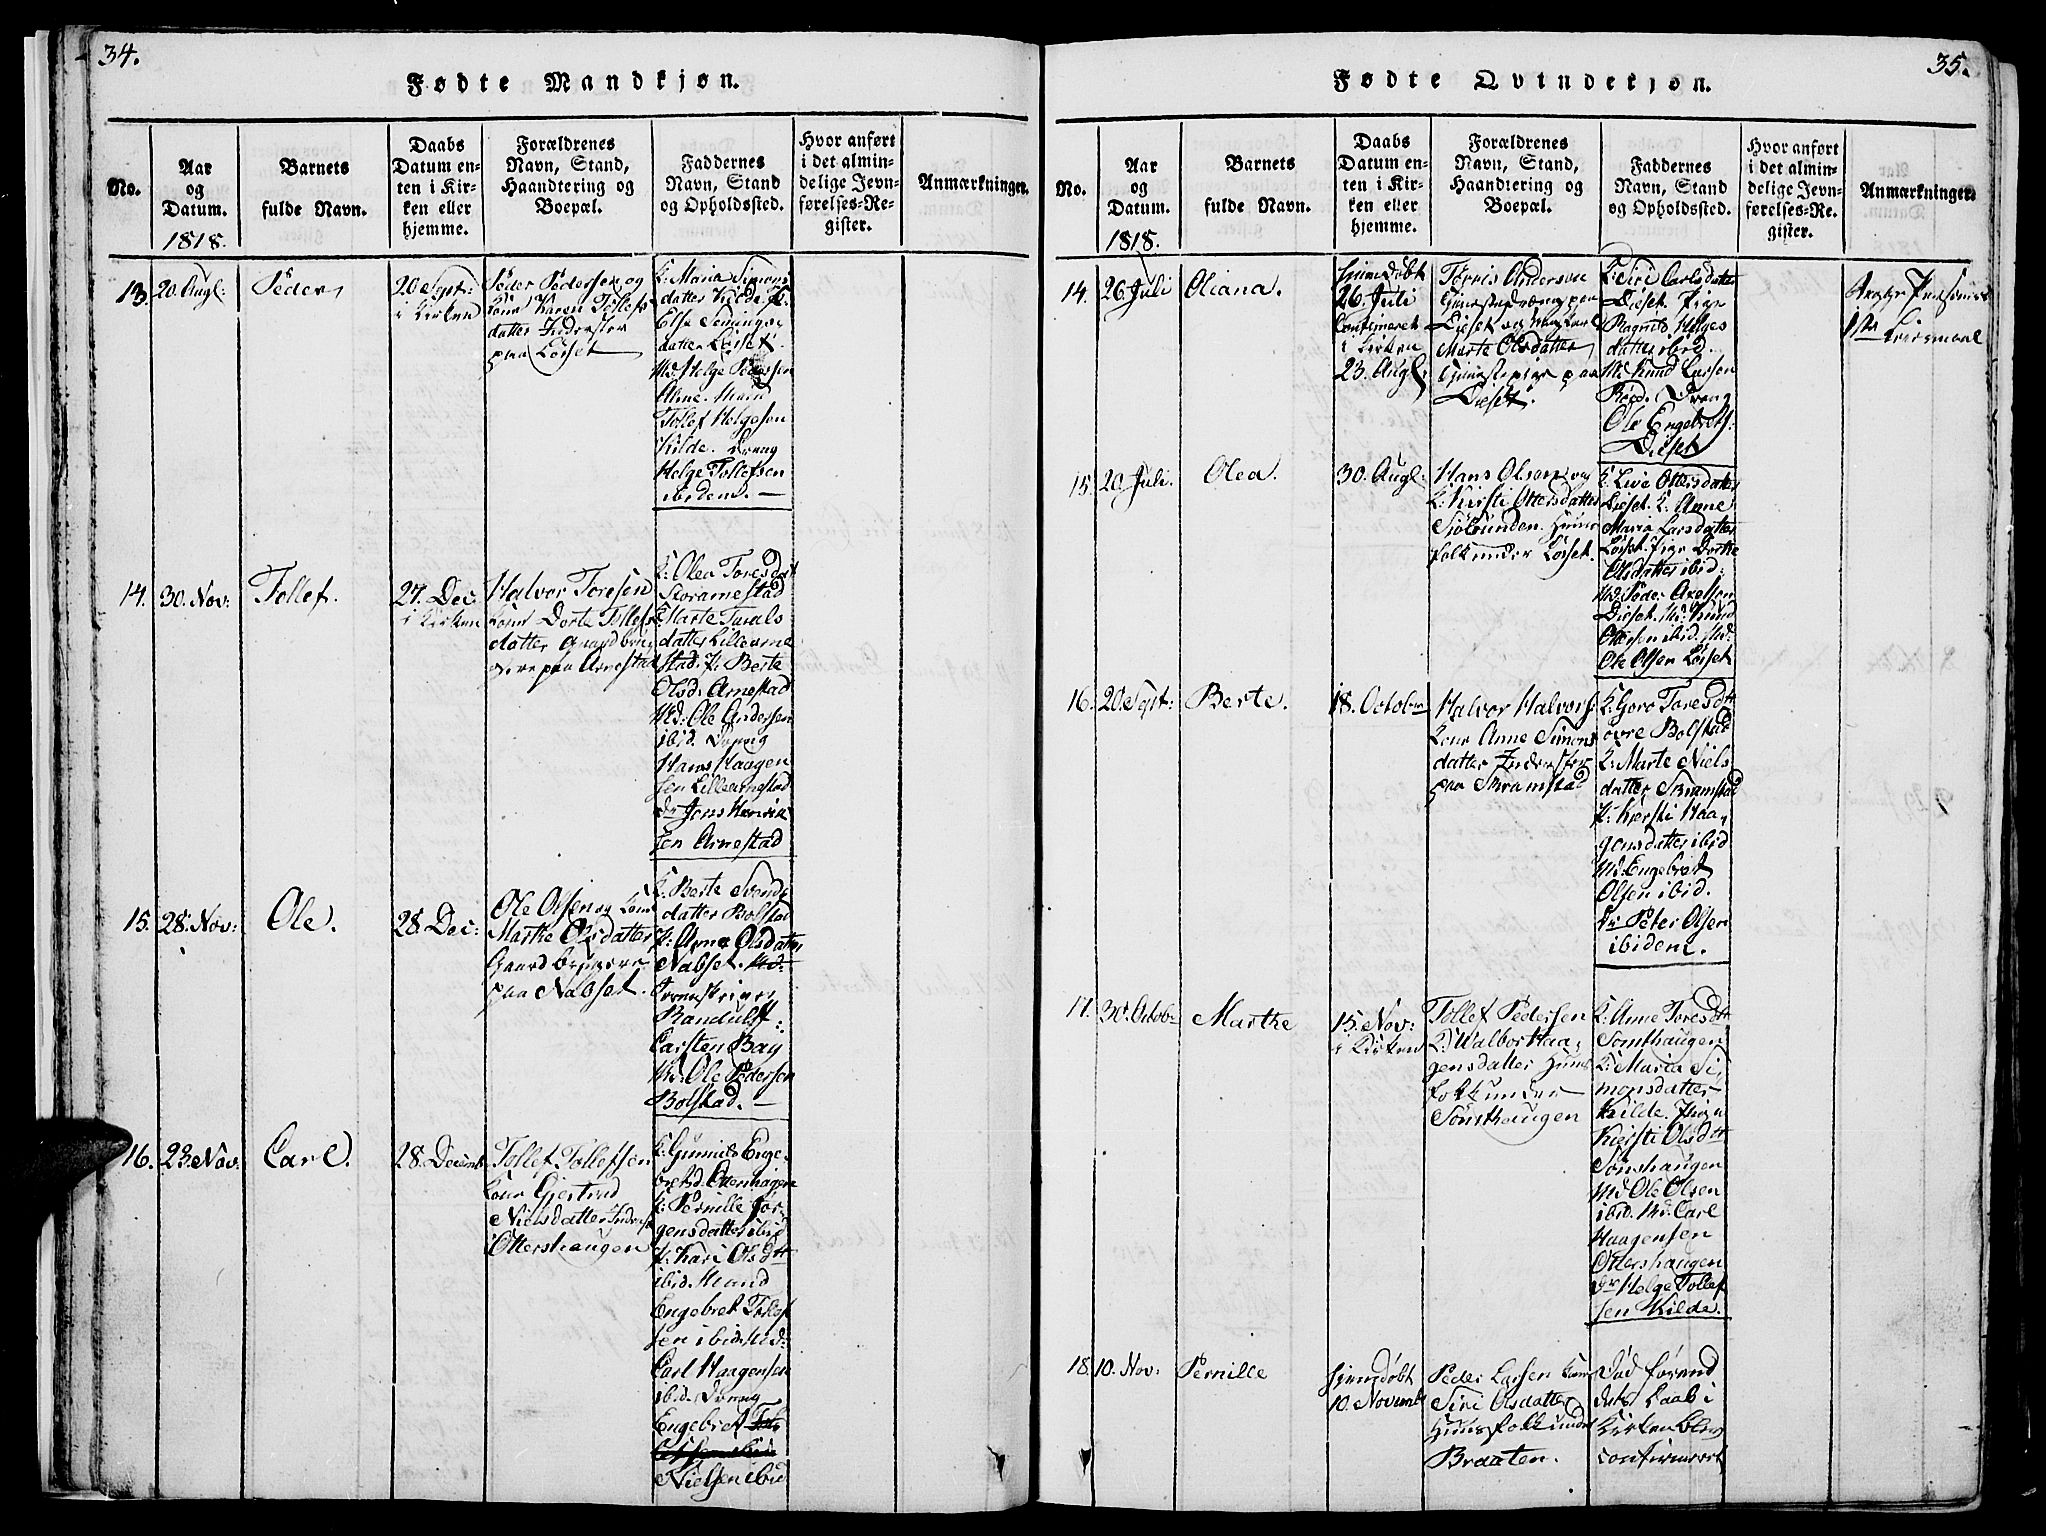 34.
Fødte Mandkjøn.
No.
Aar
og
Datum.
1818.
Barnets
fulde Navn.
Daabs
Datum en-
ten i Kir-
ken eller
hjemme.
Forældrenes
Navn, Stand,
Haandtering og
Boepæl.
Faddernes
Navn, Stand
og Opholdssted.
Hvor anført
i det almin-
delige Jevn-
førelses-Re-
gister.
Anmærkninger.
13.
20. Augl:
Peder
20 Sept:
i Kirken
Peder Pedersen og
Kone Karen Tollefs
datter Inderster
paa Løset
K: Maria Simons
datter Kilde. K.
Else Semings
datter Løset.
Md. Helge Pedersen
Alme. Mand
Tollef Helgesen
Kilde. Dreng
Helge Tollefsen
ibidem. —
14.
30. Nov:
Tollef.
27. Dec:
i Kirken
Halvor Toresen
Kone Dorte Tollefs
datter Gaardbru
gere paa Arnestad
K: Olea Toresdat
Storarnestad
K. Marte Tarals
datter Lillearne
stad. P: Berte
Olsd. Arnestad
Md: Ole Andersen
ibid. Dreng
Hans Haagen
sen Lillearnestad
Dr Jens Henrik
sen Arnestad
15.
28. Nov:
Ole.
28. Dec:
Ole Olsen og Kone
Marthe Olsdatter
Gaardbrugere
paa Nabset.
K. Berte Svends
datter Bolstad
P: Anne Olsdatter
Nabset.
Randulf
Carsten Bay
Md: Ole Pedersen
Bolstad. —
16.
23. Nov.
Carl.
28. Decemb
Tollef Tollefsen
Kone Gjertrud
Nielsdatter Inderst
Ottershaugen
K. Gunnild Enge
bretsd. Ottershagen
K: Pernille Jør
gensdatter ibid
P. Kari Olsdtr
ibid. Mand
Engebret Tollef
sen ibid. Md:
Carl Haagensen
ibid. Dreng
Engebret
Nielsen ibid
35.
Fødte Qvindekjøn.
No.
Aar
og
Datum.
1818.
Barnets
fulde Navn.
Daabs
Datum en-
ten i Kir-
ken eller
hjemme.
Forældrenes
Navn, Stand,
Haandtering og
Boepæl.
Faddernes
Navn, Stand
og Opholdssted.
Hvor anført
i det almin-
delige Jevn-
førelses-Re-
gister.
Anmærkninger.
14.
26. Juli
Oliana.
Hjemdøbt
26. Juli
Confirmeret
i Kirken
23. Augl.
Tørris Anderson
Tjenestedreng paa
Diset og
Marte Olsdatter
Tjenestepige paa
Diset.
K. Siri Carlsdatter
Diset. Pige
Ragnild Helges
datter ibid.
M. Knud Larsen
Dreng
Ole Engebrets:
Diset
Leiermaal
15.
20. Juli.
Olea.
30. Augl:
Hans Olsen og
K: Kirsti Ottersdatter
Sjølunden. Huus
folk under Løset.
K. Live Ottersdatter
Diset. K. Anne
Maria Larsdatter
Løset. Pige Dorthe
Olsdatter ibid:
Md. Peder Axelsen
Diset. Md. Knud
Ottersen ibid. Md:
Ole Olsen Løset
16.
20. Sept:
Berte.
18. Octobr
Halvor Halvors.
Kone Anne Simons
datter Inderster
paa Skramstad
K: Goro Toresdtr
øvre Bolstad
K: Marte Niels
datter Skramstad
P. Kiersti Haa
gensdatter ibid
Md. Engebret
Olsen ibid.
Dr Peter Olsen
ibidem.
17.
30. Octobr
Marthe
15. Nov:
i Kirken
Tollef Pedersen
K: Walbor Haa
gensdatter Huus
folk under
Sønsthaugen
K: Anne Toresdtr
Sønsthaugen
K: Maria Si
monsdatter
Kilde. Pige
Kiersti Olsdtr
Sønshaugen
Md Ole Olsen
ibid. Md. Carl
Haagensen
Ottershaugen
Dr Helge Tollef
sen Kilde.
18.
10. Nov:
Pernille
Hjemdøbt
10. Novemb
Peder Larsen Kone
Siri Olsdatter
Huusfolk under
Braaten.
Død førend
dets Daab i
Kirken blev
confirmeret